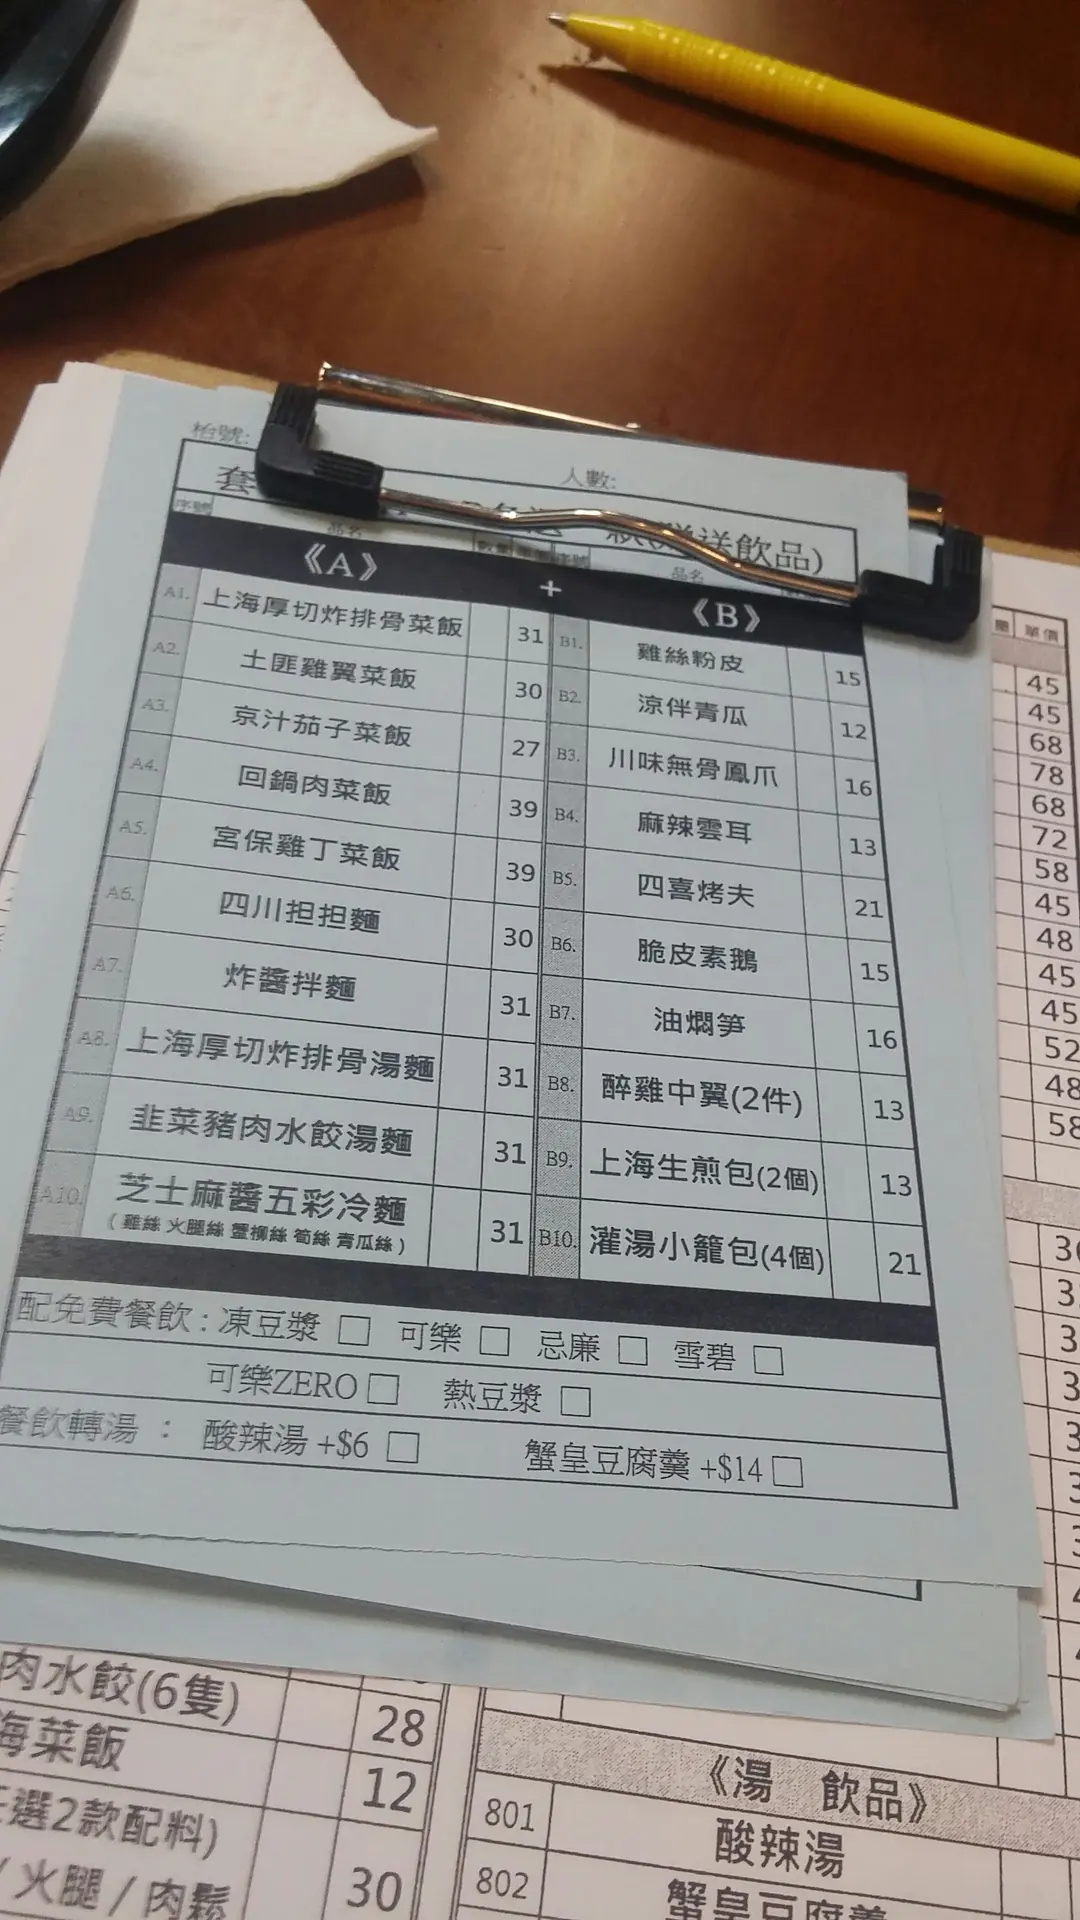 枱號:
人數:
套
贈送飲品)
序號 品名 數量 單價 序號 品名
《A》 + 《B》
A1. 上海厚切炸排骨菜飯 31 B1. 雞絲粉皮 15
A2. 土匪雞翼菜飯 30 B2. 涼伴青瓜 12
A3. 京汁茄子菜飯 27 B3. 川味無骨鳳爪 16
A4. 回鍋肉菜飯 39 B4. 麻辣雲耳 13
A5. 宮保雞丁菜飯 39 B5. 四喜烤夫 21
A6. 四川担担麵 30 B6. 脆皮素鵝 15
A7. 炸醬拌麵 31 B7. 油燜笋 16
A8. 上海厚切炸排骨湯麵 31 B8. 醉雞中翼(2件) 13
A9. 韭菜豬肉水餃湯麵 31 B9. 上海生煎包(2個) 13
A10. 芝士麻醬五彩冷麵 31 B10. 灌湯小籠包(4個) 21
(雞絲 火腿絲 蟹柳絲 筍絲 青瓜絲)
配免費餐飲: 凍豆漿 □ 可樂 □ 忌廉 □ 雪碧 □
可樂ZERO □ 熱豆漿 □
餐飲轉湯 : 酸辣湯 +$6 □ 蟹皇豆腐羹 +$14 □
單價
45
45
68
78
68
72
58
45
48
45
45
52
48
58
肉水餃(6隻) 28
海菜飯 12
選2款配料)
/ 火腿 / 肉鬆 30
《湯 飲品》
801 酸辣湯
802 蟹皇豆腐羹